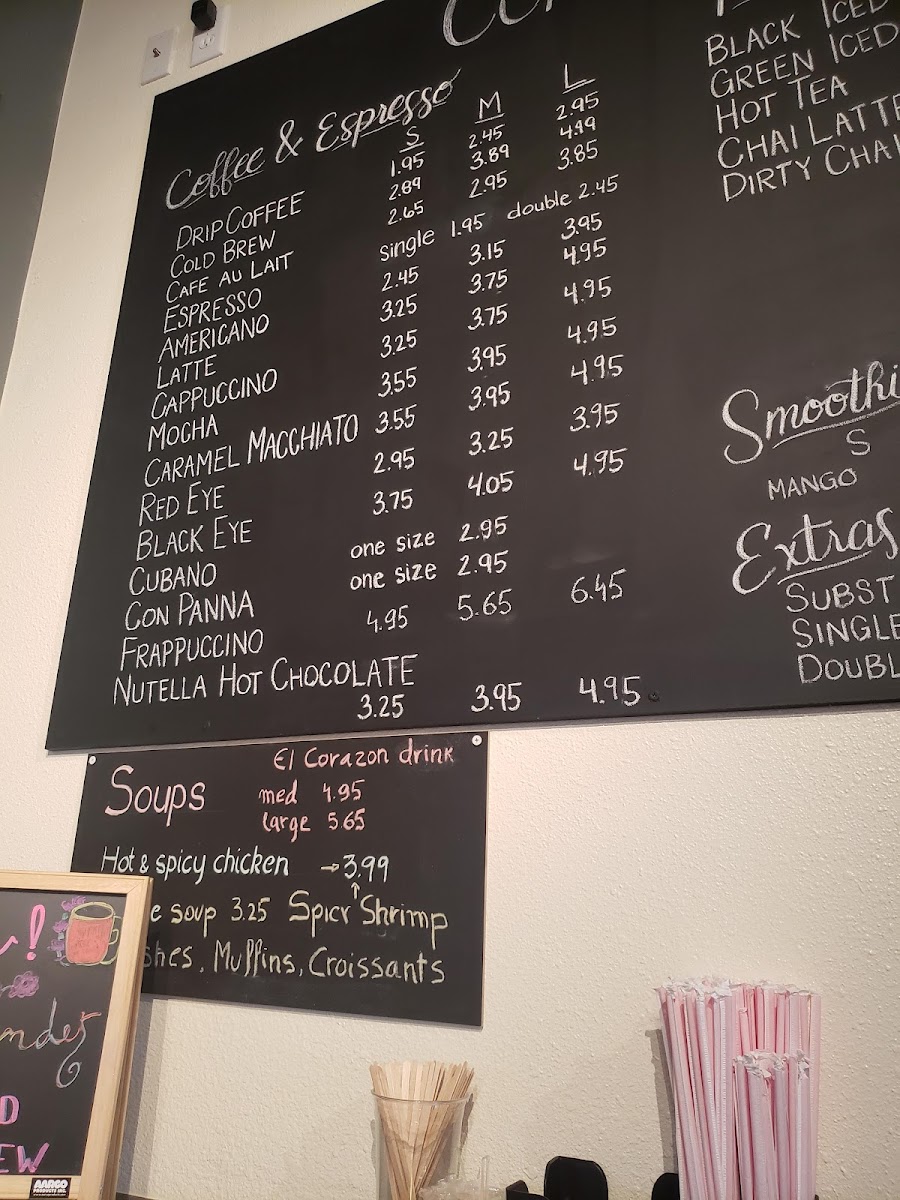 Coffee & Espresso
S M L
DRIP COFFEE 1.95 2.45 2.95
COLD BREW 2.89 3.89 4.49
CAFE AU LAIT 2.65 2.95 3.85
ESPRESSO single 1.95 double 2.45
AMERICANO 2.45 3.15 3.95
LATTE 3.25 3.75 4.95
CAPPUCCINO 3.25 3.75 4.95
MOCHA 3.55 3.95 4.95
CARAMEL MACCHIATO 3.55 3.95 4.95
RED EYE 2.95 3.25 3.95
BLACK EYE 3.75 4.05 4.95
CUBANO one size 2.95
CON PANNA one size 2.95
FRAPPUCCINO 4.95 5.65 6.45
NUTELLA HOT CHOCOLATE
3.25 3.95 4.95
BLACK ICED
GREEN ICED
HOT TEA
CHAI LATTE
DIRTY CHAI
Smoothi
S
MANGO
Extras
SUBST
SINGLE
DOUBL
El Corazon drink
Soups med 4.95
large 5.65
Hot & spicy chicken → 3.99
e soup 3.25 Spicy Shrimp
shes, Muffins, Croissants
!
ndez
D
EW
AARCO
PRODUCTS INC.